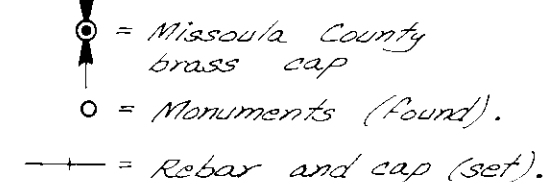 = Missoula County
brass cap
= Monuments (found).
= Rebar and cap (set).